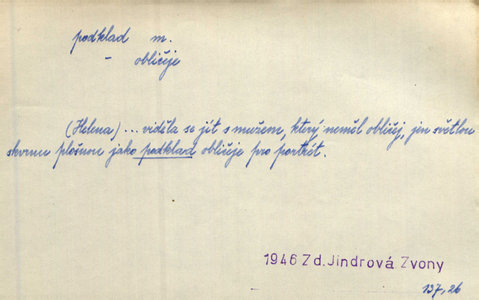 podklad m.
– obličeje
(Helena) ... viděla se jít s mužem, který neměl obličej, jen světlou
skvrnu plošnou jako podklad obličeje pro portrét.
1946 Zd. Jindrová Zvony
137,26